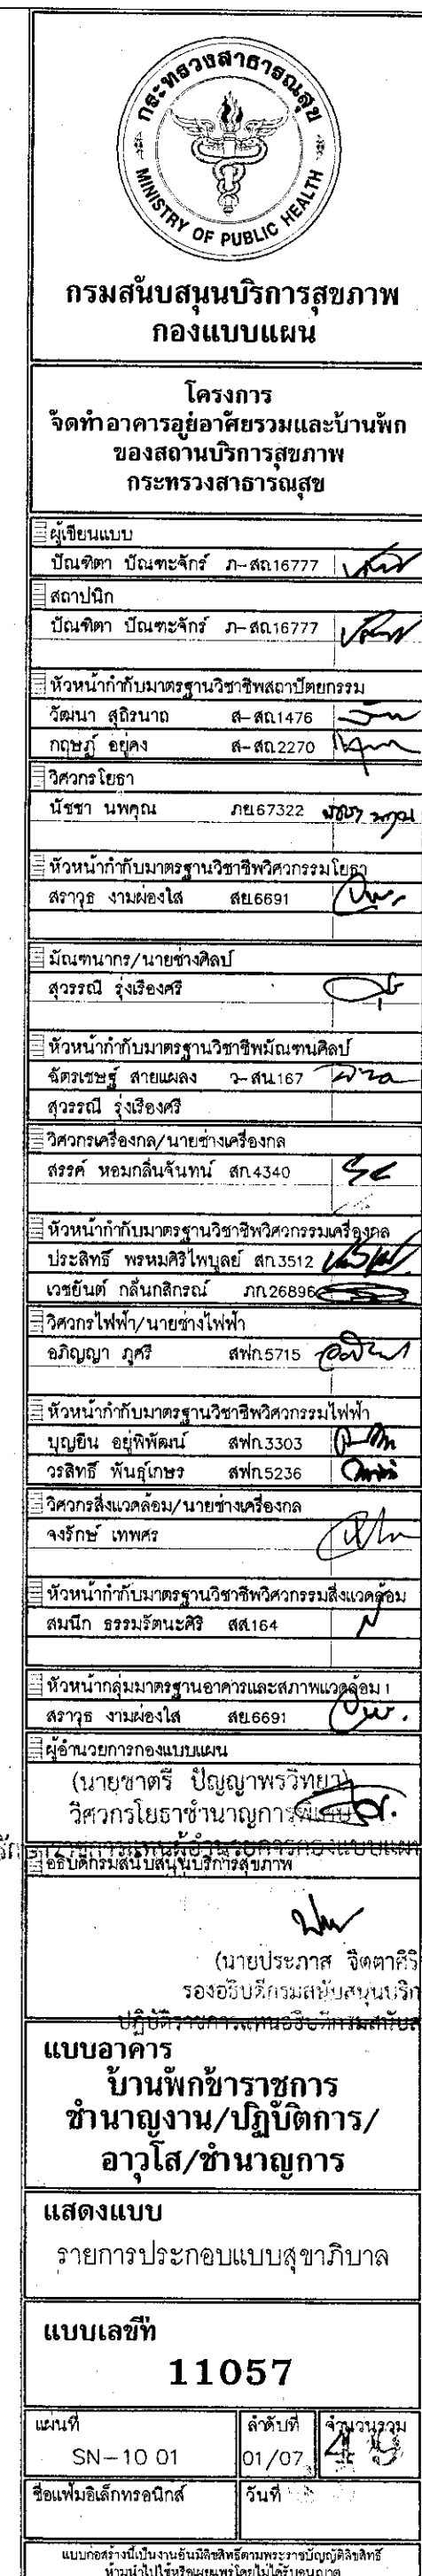 กระทรวงสาธารณสุข
MINISTRY OF PUBLIC HEALTH
กรมสนับสนุนบริการสุขภาพ
กองแบบแผน
โครงการ
จัดทำอาคารอยู่อาศัยรวมและบ้านพัก
ของสถานบริการสุขภาพ
กระทรวงสาธารณสุข
ผู้เขียนแบบ
ปัณฑิตา ปัณฑะจักร์ ภ-สถ.16777
สถาปนิก
ปัณฑิตา ปัณฑะจักร์ ภ-สถ.16777
หัวหน้ากำกับมาตรฐานวิชาชีพสถาปัตยกรรม
วัฒนา สุถิรนาถ ส-สถ.1476
กฤษฎ์ อยู่คง ส-สถ.2270
วิศวกรโยธา
นัชชา นพคุณ ภย.67322 นัชชา นพคุณ
หัวหน้ากำกับมาตรฐานวิชาชีพวิศวกรรมโยธา
สราวุธ งามผ่องใส สย.6691
มัณฑนากร/นายช่างศิลป์
สุวรรณี รุ่งเรืองศรี
หัวหน้ากำกับมาตรฐานวิชาชีพมัณฑนศิลป์
ฉัตรเชษฐ์ สายแผลง ว-สน.167
สุวรรณี รุ่งเรืองศรี
วิศวกรเครื่องกล/นายช่างเครื่องกล
สรรค์ หอมกลิ่นจันทน์ สก.4340
หัวหน้ากำกับมาตรฐานวิชาชีพวิศวกรรมเครื่องกล
ประสิทธิ์ พรหมศิริไพบูลย์ สก.3512
เวชยันต์ กลั่นกสิกรณ์ ภก.26896
วิศวกรไฟฟ้า/นายช่างไฟฟ้า
อภิญญา ภูศรี สฟก.5715
หัวหน้ากำกับมาตรฐานวิชาชีพวิศวกรรมไฟฟ้า
บุญยืน อยู่พิพัฒน์ สฟก.3303
วรสิทธิ์ พันธุ์เกษร สฟก.5236
วิศวกรสิ่งแวดล้อม/นายช่างเครื่องกล
จงรักษ์ เทพศร
หัวหน้ากำกับมาตรฐานวิชาชีพวิศวกรรมสิ่งแวดล้อม
สมนึก ธรรมรัตนะศิริ สส.164
หัวหน้ากลุ่มมาตรฐานอาคารและสภาพแวดล้อม 1
สราวุธ งามผ่องใส สย.6691
ผู้อำนวยการกองแบบแผน
(นายชาตรี ปัญญาพรวิทยา)
วิศวกรโยธาชำนาญการพิเศษ
รักษาราชการแทนผู้อำนวยการกองแบบแผน
อธิบดีกรมสนับสนุนบริการสุขภาพ
(นายประภาส จิตตาศิริ
รองอธิบดีกรมสนับสนุนบริก
ปฏิบัติราชการแทนอธิบดีกรมสนับส
แบบอาคาร
บ้านพักข้าราชการ
ชำนาญงาน/ปฏิบัติการ/
อาวุโส/ชำนาญการ
แสดงแบบ
รายการประกอบแบบสุขาภิบาล
แบบเลขที่
11057
แผ่นที่ ลำดับที่ จำนวนรวม
SN-10 01 01/07 49
ชื่อแฟ้มอิเล็กทรอนิกส์ วันที่
แบบก่อสร้างนี้เป็นงานอันมีลิขสิทธิ์ตามพระราชบัญญัติลิขสิทธิ์
ห้ามนำไปใช้หรือเผยแพร่โดยไม่ได้รับอนุญาต